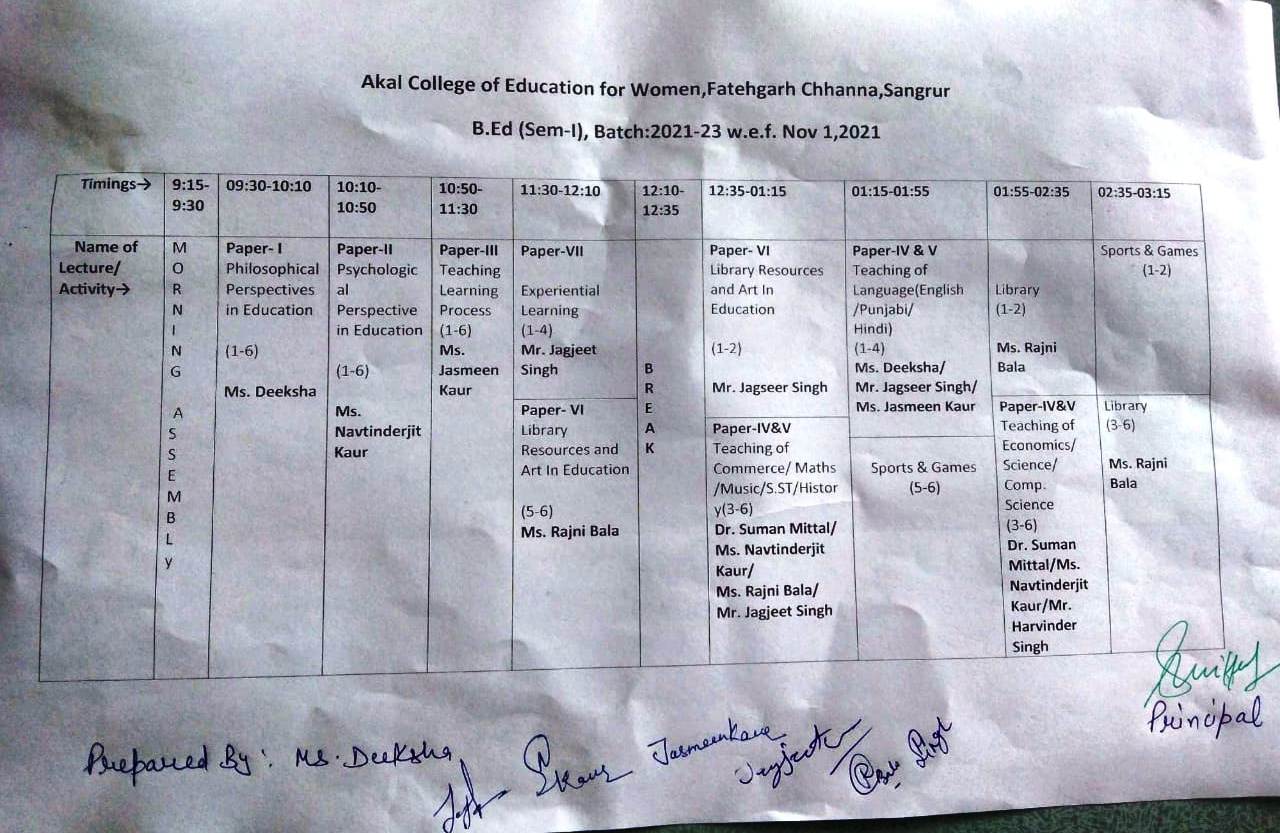 Akal College of Education for Women,Fatehgarh Chhanna,Sangrur
B.Ed (Sem-I), Batch:2021-23 w.e.f. Nov 1,2021
Timings→
9:15-
9:30
09:30-10:10
10:10-
10:50
10:50-
11:30
11:30-12:10
12:10-
12:35
12:35-01:15
01:15-01:55
01:55-02:35
02:35-03:15
Name of
Lecture/
Activity→
M
O
R
N
I
N
G
A
S
S
E
M
B
L
y
Paper- I
Philosophical
Perspectives
in Education
(1-6)
Ms. Deeksha
Paper-II
Psychologic
al
Perspective
in Education
(1-6)
Ms.
Navtinderjit
Kaur
Paper-III
Teaching
Learning
Process
(1-6)
Ms.
Jasmeen
Kaur
Paper-VII
Experiential
Learning
(1-4)
Mr. Jagjeet
Singh
Paper- VI
Library
Resources and
Art In Education
(5-6)
Ms. Rajni Bala
B
R
E
A
K
Paper- VI
Library Resources
and Art In
Education
(1-2)
Mr. Jagseer Singh
Paper-IV&V
Teaching of
Commerce/ Maths
/Music/S.ST/Histor
y(3-6)
Dr. Suman Mittal/
Ms. Navtinderjit
Kaur/
Ms. Rajni Bala/
Mr. Jagjeet Singh
Paper-IV & V
Teaching of
Language(English
/Punjabi/
Hindi)
(1-4)
Ms. Deeksha/
Mr. Jagseer Singh/
Ms. Jasmeen Kaur
Sports & Games
(5-6)
Library
(1-2)
Ms. Rajni
Bala
Paper-IV&V
Teaching of
Economics/
Science/
Comp.
Science
(3-6)
Dr. Suman
Mittal/Ms.
Navtinderjit
Kaur/Mr.
Harvinder
Singh
Sports & Games
(1-2)
Library
(3-6)
Ms. Rajni
Bala
Principal
Prepared By: Ms. Deeksha
Kaur
Jasmeenkaur
Singh